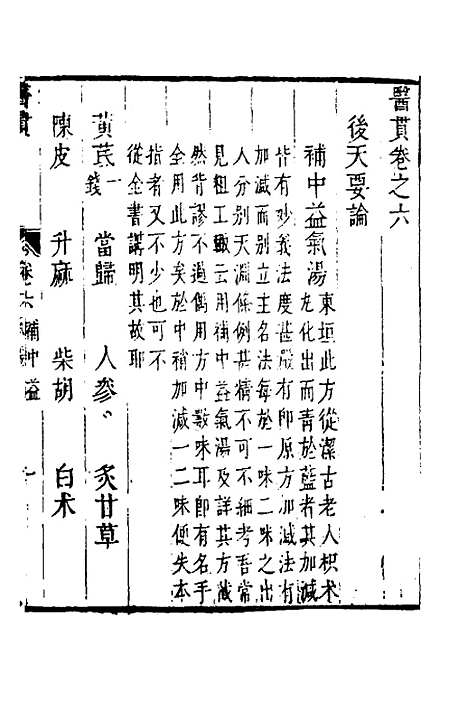 醫貫卷之六
後天要論
補中益氣湯 東垣此方從潔古老人枳术
丸化出而青於藍者其加減
皆有妙義法度甚嚴有即原方加減法有
加減而別立主名法每於一味二味之出
人分別天淵條例甚精不可不細考吾常
見粗工輒云用補中益氣湯及詳其方藏
然背謬不過偶用方中數味耳即有名手
全用此方矣於中稍加減一二味便失本
指者又不少也可不
從全書講明其故耶
黃芪一錢 當歸 人參 炙甘草
陳皮 升麻 柴胡 白术
醫貫 卷之六 補中益 一